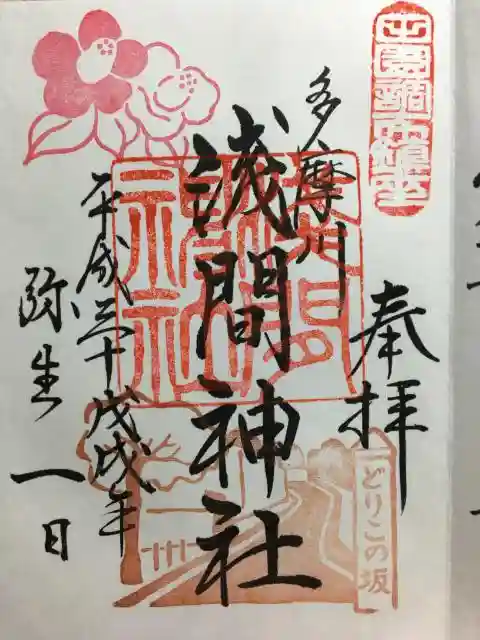 奉拝
多摩川
浅間神社
平成三十戊戌年
弥生一日
どりこの坂